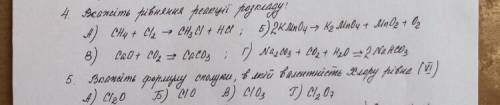 4. Вкажіть рівняння реакції розкладу:
А) CH₄ + Cl₂ → CH₃Cl + HCl ; Б) 2KMnO₄ → K₂MnO₄ + MnO₂ + O₂
В) CaO + CO₂ → CaCO₃ ; Г) Na₂CO₃ + CO₂ + H₂O → 2NaHCO₃
5. Вкажіть формулу сполуки, в якій валентність Хлору рівна (VI)
А) Cl₂O Б) ClO В) ClO₃ Г) Cl₂O₇